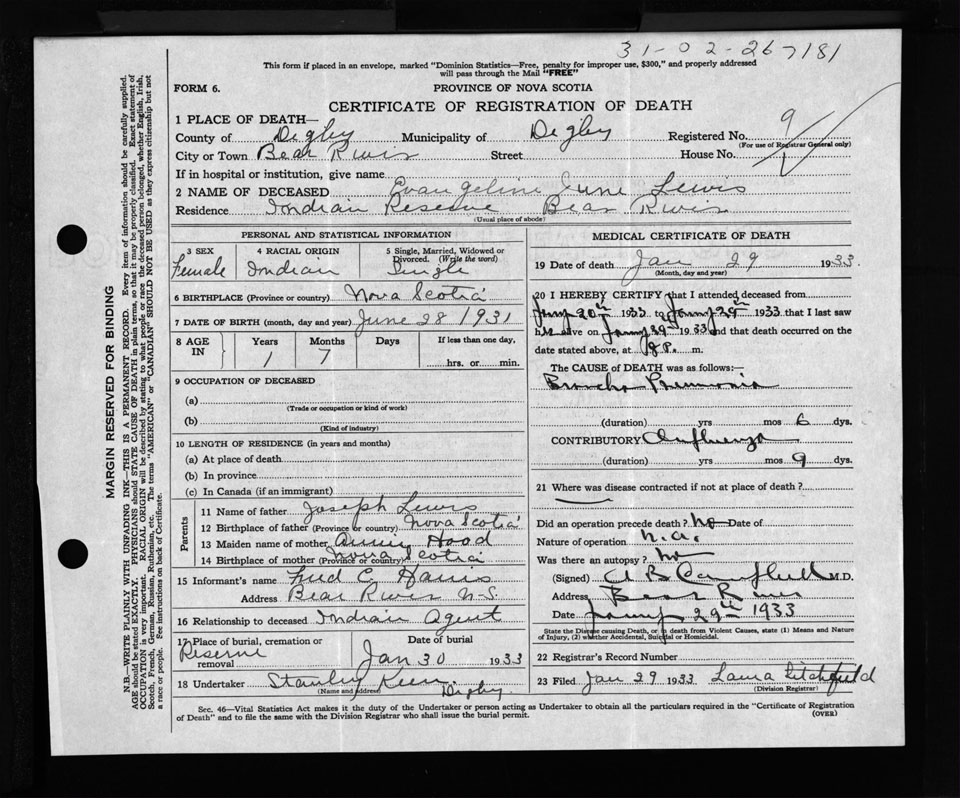 31-02-267181
This form if placed in an envelope, marked "Dominion Statistics—Free, penalty for improper use, $300," and properly addressed
will pass through the Mail "FREE"
FORM 6.
PROVINCE OF NOVA SCOTIA
CERTIFICATE OF REGISTRATION OF DEATH
1 PLACE OF DEATH—
County of Digby Municipality of Digby Registered No. 9
(For use of Registrar General only)
City or Town Bear River Street House No.
If in hospital or institution, give name
2 NAME OF DECEASED Evangeline June Lewis
Residence Indian Reserve Bear River
(Usual place of abode)
PERSONAL AND STATISTICAL INFORMATION
3 SEX 4 RACIAL ORIGIN 5 Single, Married, Widowed or
Divorced. (Write the word)
Female Indian Single
6 BIRTHPLACE (Province or country) Nova Scotia
7 DATE OF BIRTH (month, day and year) June 28 1931
8 AGE IN Years Months Days If less than one day,
1 7 hrs. or min.
9 OCCUPATION OF DECEASED
(a)
(Trade or occupation or kind of work)
(b)
(Kind of industry)
10 LENGTH OF RESIDENCE (in years and months)
(a) At place of death
(b) In province
(c) In Canada (if an immigrant)
Parents
11 Name of father Joseph Lewis
12 Birthplace of father (Province or country) Nova Scotia
13 Maiden name of mother Annie Hood
14 Birthplace of mother (Province or country) Nova Scotia
15 Informant's name Fred C Harris
Address Bear River N.S.
16 Relationship to deceased Indian Agent
17 Place of burial, cremation or removal Reserve
Date of burial
Jan 30 1933
18 Undertaker Stanley Digby
(Name and address)
MEDICAL CERTIFICATE OF DEATH
19 Date of death Jan 29 1933.
(Month, day and year)
20 I HEREBY CERTIFY that I attended deceased from
Jany 20th 1933 to Jany 29th 1933 that I last saw
h alive on Jany 29th 1933 and that death occurred on the
date stated above, at 8 P. m.
The CAUSE of DEATH was as follows:—
Broncho Pneumonia
(duration) yrs mos 6 dys.
CONTRIBUTORY Influenza
(duration) yrs mos 9 dys.
21 Where was disease contracted if not at place of death?
Did an operation precede death? no Date of
Nature of operation n.a.
Was there an autopsy? no
(Signed) A B Campbell M.D.
Address Bear River
Date Jany 29th 1933
State the Disease causing Death, or in death from Violent Causes, state (1) Means and Nature
of Injury, (2) whether Accidental, Suicidal or Homicidal.
22 Registrar's Record Number
23 Filed Jan 29 1933 Laura Litchfield
(Division Registrar)
Sec. 46—Vital Statistics Act makes it the duty of the Undertaker or person acting as Undertaker to obtain all the particulars required in the "Certificate of Registration
of Death" and to file the same with the Division Registrar who shall issue the burial permit.
(OVER)
MARGIN RESERVED FOR BINDING
N.B.—WRITE PLAINLY WITH UNFADING INK—THIS IS A PERMANENT RECORD. Every item of information should be carefully supplied.
AGE should be stated EXACTLY. PHYSICIANS should STATE CAUSE OF DEATH in plain terms, so that it may be properly classified. Exact statement of
OCCUPATION is very important. RACIAL ORIGIN will be described by stating to what people or race the deceased person belonged, whether English, Irish,
Scotch, French, German, Russian, Ruthenian, etc. The terms "AMERICAN" or "CANADIAN" SHOULD NOT BE USED as they express citizenship but not
a race or people. See instructions on back of Certificate.